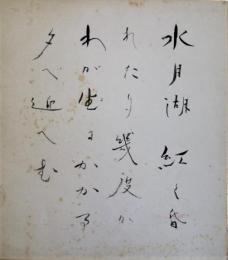 水月湖紅く昏
れたり幾度か
わが生にかかる
夕べ迎へむ